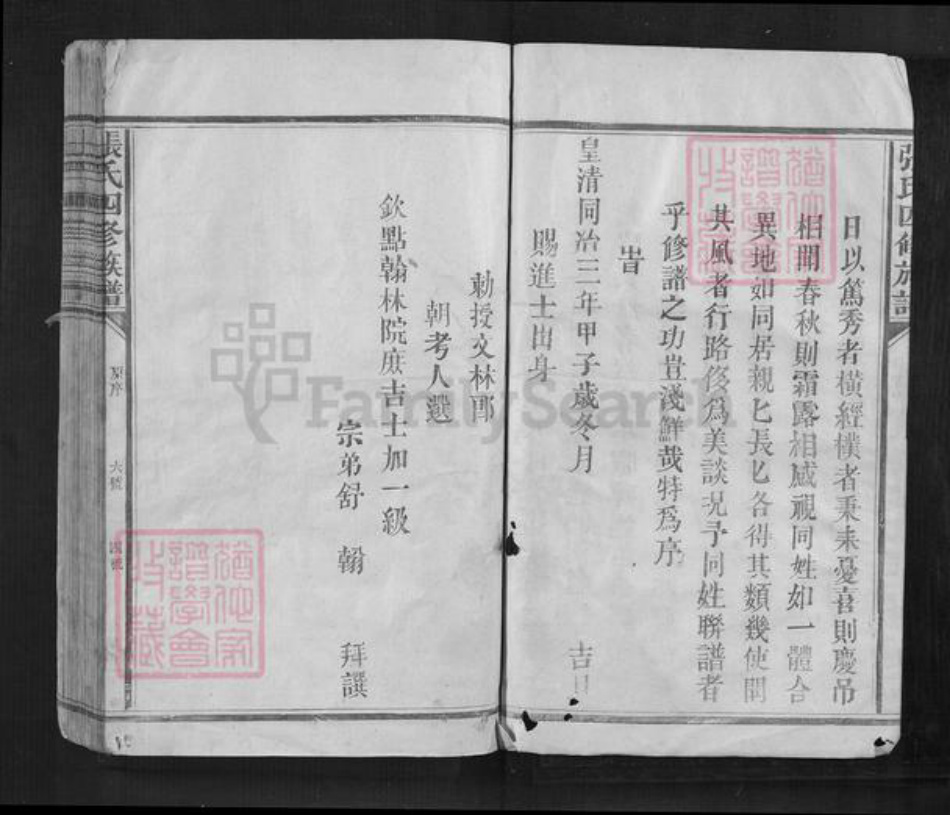 張氏四修族譜
日以篤秀者橫經樸者秉耒憂喜則慶吊
相聞春秋則霜露相感視同姓如一體合
異地如同居親匕長匕各得其類幾使聞
其風者行路後為美談況予同姓聯譜者
乎修譜之功豈淺鮮哉特爲序
旹
皇清同治三年甲子歲冬月 吉
賜進士出身
勅授文林郎
朝考入選
欽點翰林院庶吉士加一級
宗弟舒 翰 拜譔
張氏四修族譜
原序
六號
猶他家
譜學會
收藏
猶他家
譜學會
收藏
FamilySearch